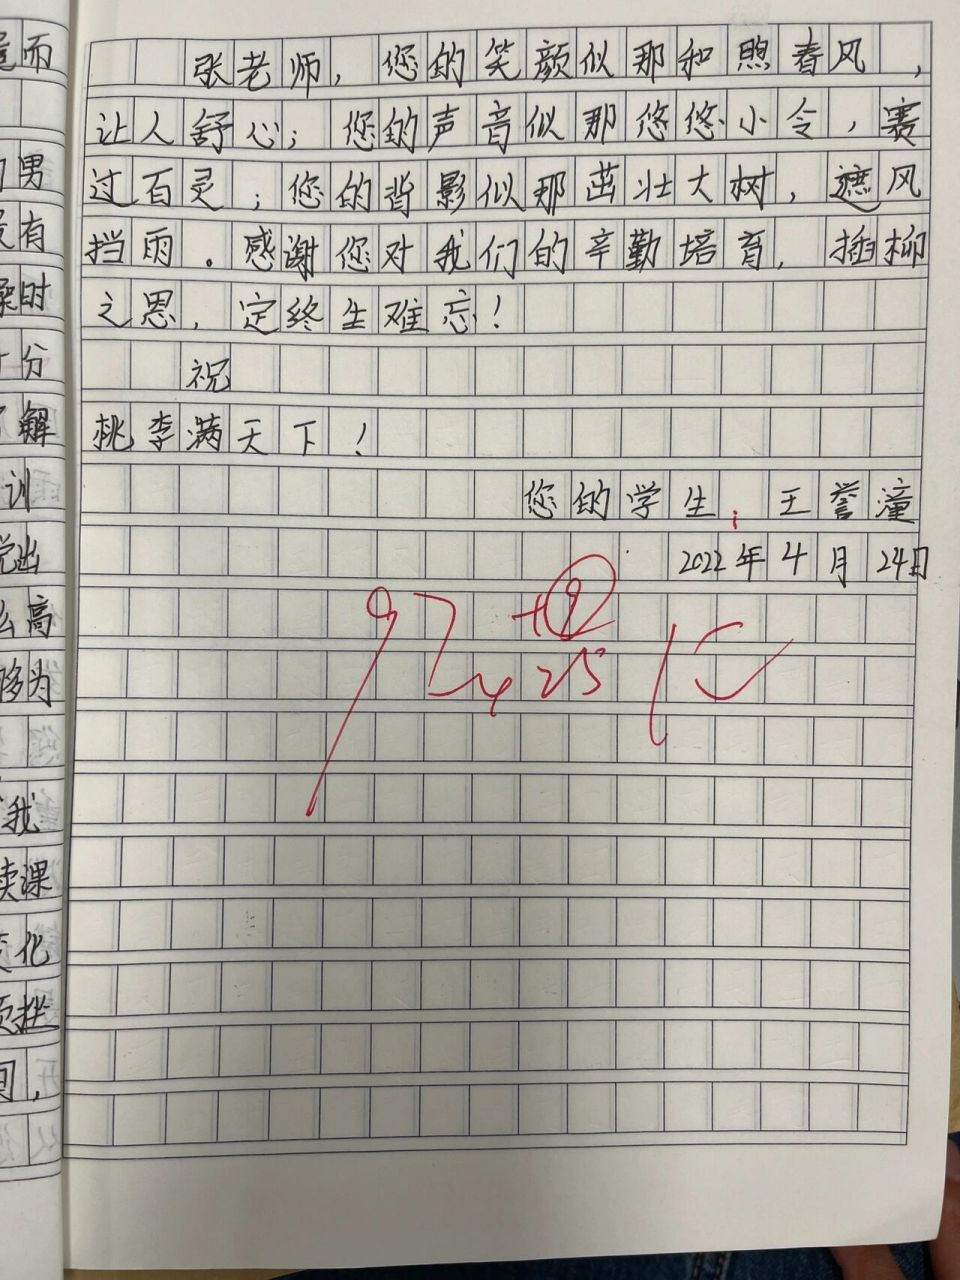 张老师，您的笑颜似那和煦春风，
让人舒心；您的声音似那悠悠小令，赛
过百灵；您的背影似那茁壮大树，遮风
挡雨。感谢您对我们的辛勤培育，插柳
之恩，定终生难忘！
祝
桃李满天下！
您的学生：王誉潼
2022年4月24日
97
+9
25
而
男
有
时
分
解
训
出
么高
够为
我
读课
化
挫